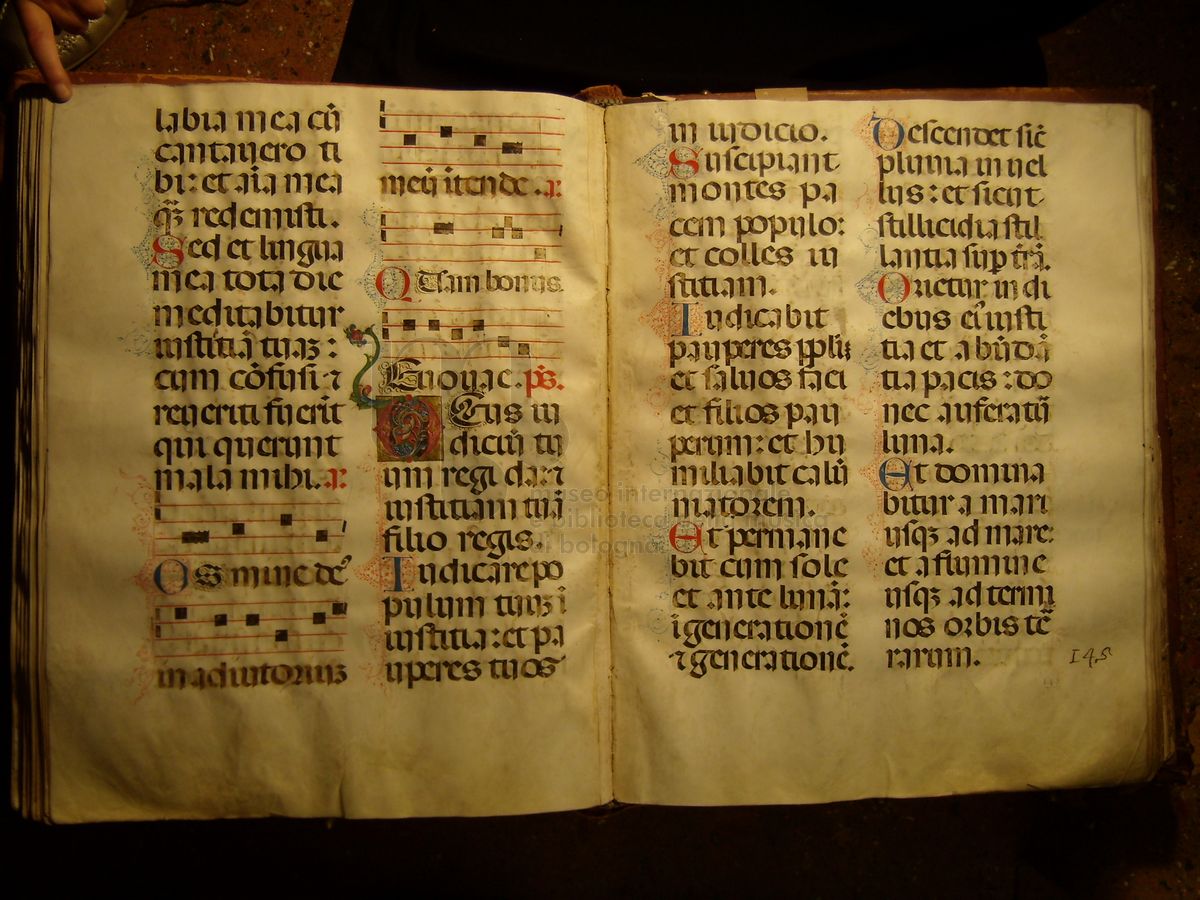 labia mea cū
cantauero ti
bi: et aīa mea
qȝ redemisti.
Sed et lingua
mea tota die
meditabitur
iustitiā tuaȝ:
cum cōfusi ⁊
reueriti fuerīt
qui querunt
mala mihi. a:
Os mine de
in adiutoriuȝ
meū ītende. a:
Qtam bonus.
Euouae. ps.
Deus iu
diciū tu
um regi da: ⁊
iustitiam tuā
filio regis.
Iudicare po
pulum tuuȝ ī
iustitia: et pa
uperes tuos
in iudicio.
Suscipiant
montes pa
cem populo:
et colles iu
stitiam.
Iudicabit
pauperes ppli:
et saluos faci
et filios pau
perum: et hu
miliabit calū
niatorem.
Et permane
bit cum sole
et ante lunā:
ī generationē
⁊ generationē.
Descendet sic̄
pluuia in uel
lus: et sicut
stillicidia stil
lantia sup trā.
Orietur in di
ebus eī iusti
tia et abūdā
tia pacis: do
nec auferatū
luna.
Et domina
bitur a mari
usqȝ ad mare:
et a flumine
usqȝ ad termi
nos orbis tē
rarum.
145
museo internazionale
e biblioteca della musica
di bologna